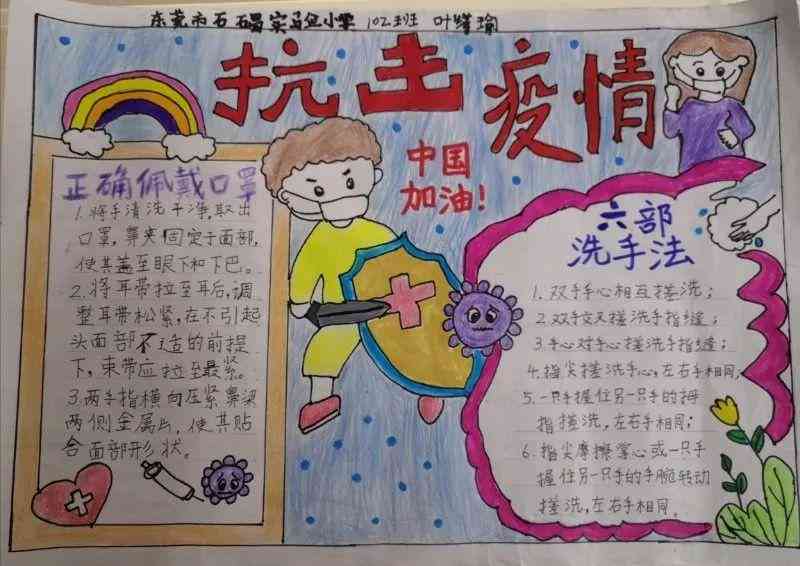 东莞市石碣实验小学 102班 叶绎瑜
抗击疫情
中国
加油!
正确佩戴口罩
1.将手清洗干净,取出
口罩,鼻夹固定于面部,
使其盖至眼下和下巴。
2.将耳带拉至耳后,调
整耳带松紧,在不引起
头面部不适的前提
下,束带应拉至最紧。
3.两手指横向压紧鼻梁
两侧金属片,使其贴
合面部形状。
六部
洗手法
1.双手手心相互搓洗;
2.双手交叉搓洗手指缝;
3.手心对手心搓洗手指缝;
4.指尖搓洗手心,左右手相同,
5.一只手握住另一只手的拇
指搓洗,左右手相同;
6.指尖摩擦掌心或一只手
握住另一只手的手腕转动
搓洗,左右手相同。